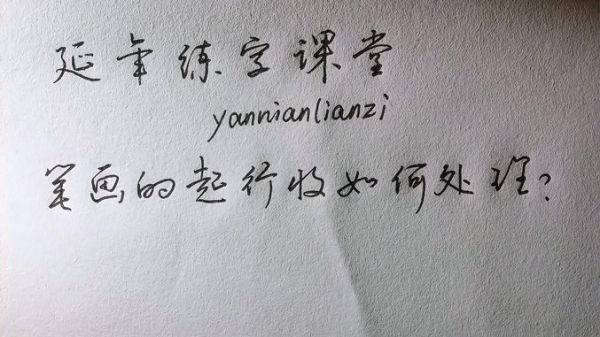 延年练字课堂
yannianlianzi
笔画的起行收如何处理?